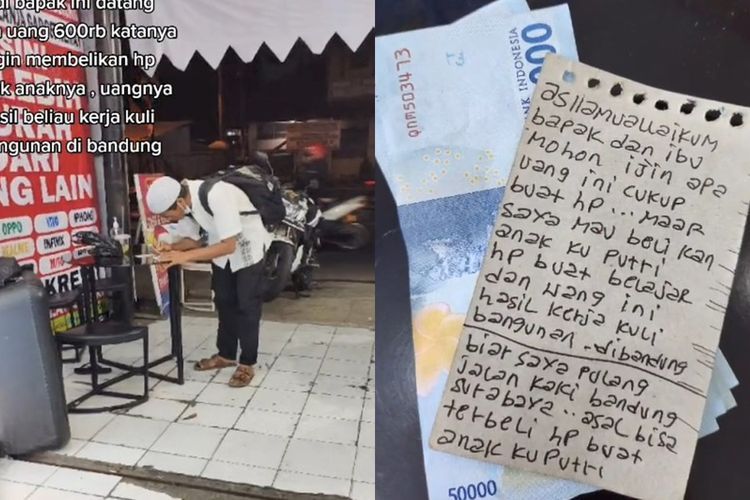 di bapak ini datang
uang 600rb katanya
membelikan hp
anaknya , uangnya
beliau kerja kuli
di bandung
LAIN
OPPO
VIVO
INFINIX
asllamuallaikum
bapak dan ibu
mohon ijin apa
uang ini cukup
buat hp... maaf
saya mau beli kan
anak ku putri
hp buat belajar
dan uang ini
hasil kerja kuli
bangunan.dibandung
biar saya pulang
jalan kaki bandung
surabaya..asal bisa
terbeli hp buat
anak ku putri
QNM503473
INDONESIA
50000